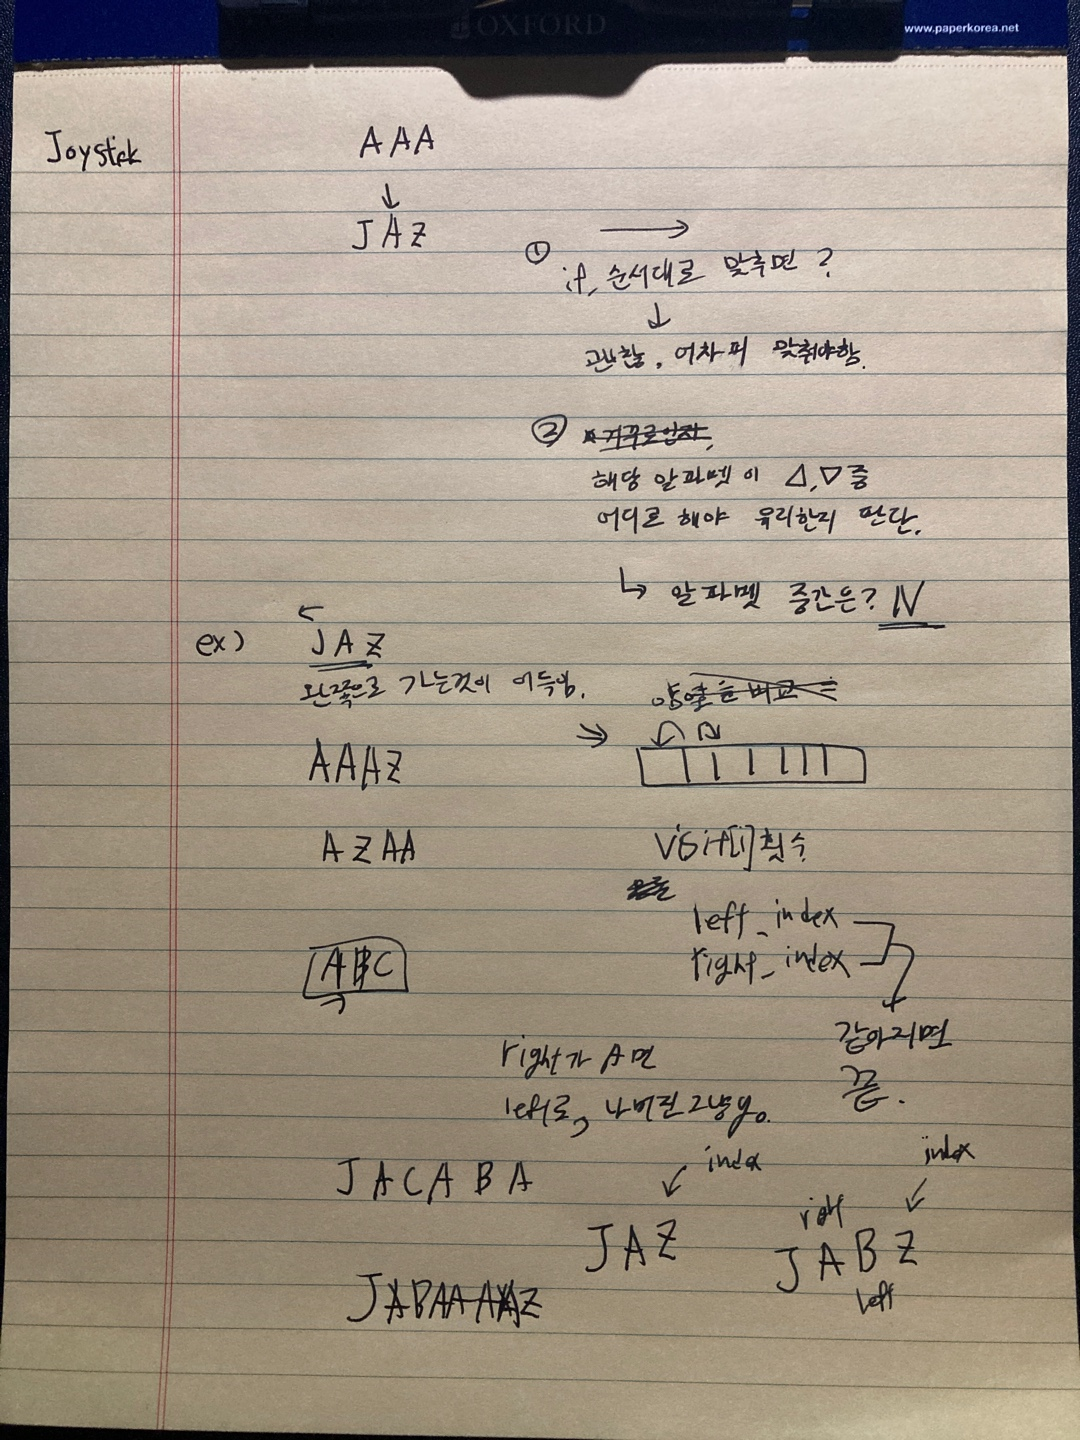 OXFORD
www.paperkorea.net
Joystick
AAA
↓
JAZ
① →
if, 순서대로 맞추면?
↓
괜찮, 어차피 맞춰야함.
② 거꾸로
해당 알파벳이 △,▽ 중
어디로 해야 유리한지 판단.
↳ 알파벳 중간은? N
ex) ←
JAZ
왼쪽으로 가는것이 이득임.
비교
AAAZ
AZAA
visit[i] 횟수
left_index
right_index
같아지면
끝.
ABC
right가 A면
left로,
JACABA
index
JAZ
index
right
JABZ
left